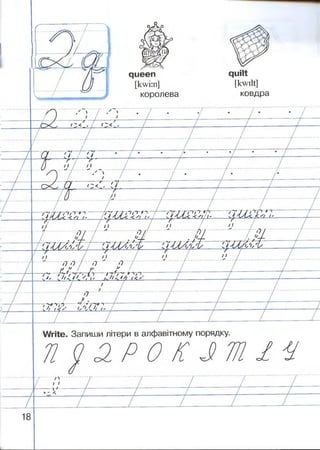 Q q
queen
[kwi:n]
королева
quilt
[kwɪlt]
ковдра
Q Q Q
q q q
Q q Q q
queen queen queen queen
quilt quilt quilt quilt
a
Write. Запиши літери в алфавітному порядку.
N J Q P O K I M L H
18